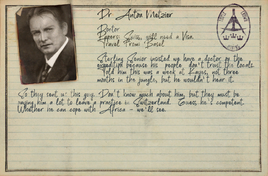 Dr. Anton Metzier
Doctor
Papers: Swiss, will need a Visa
Travel from: Basel
Sterling Senior insisted we have a doctor on the
expedition because his people don't trust the locals.
Told him this was a week at Kagus, not three
months in the jungle, but he wouldn't hear it.
So they sent us this guy. Don't know much about him, but they must be
paying him a lot to leave a practice in Switzerland. Guess he's competent.
Whether he can cope with Africa - we'll see.